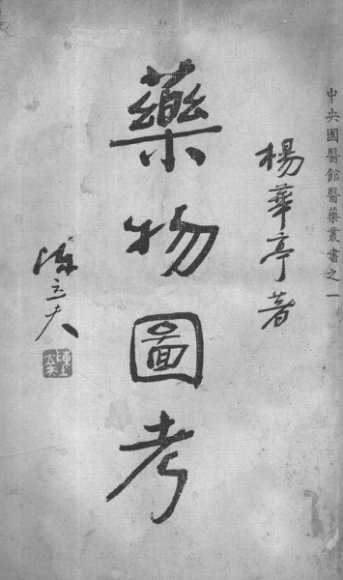 中央國醫館醫藥叢書之一
楊華亭著
藥物圖考
陳立夫